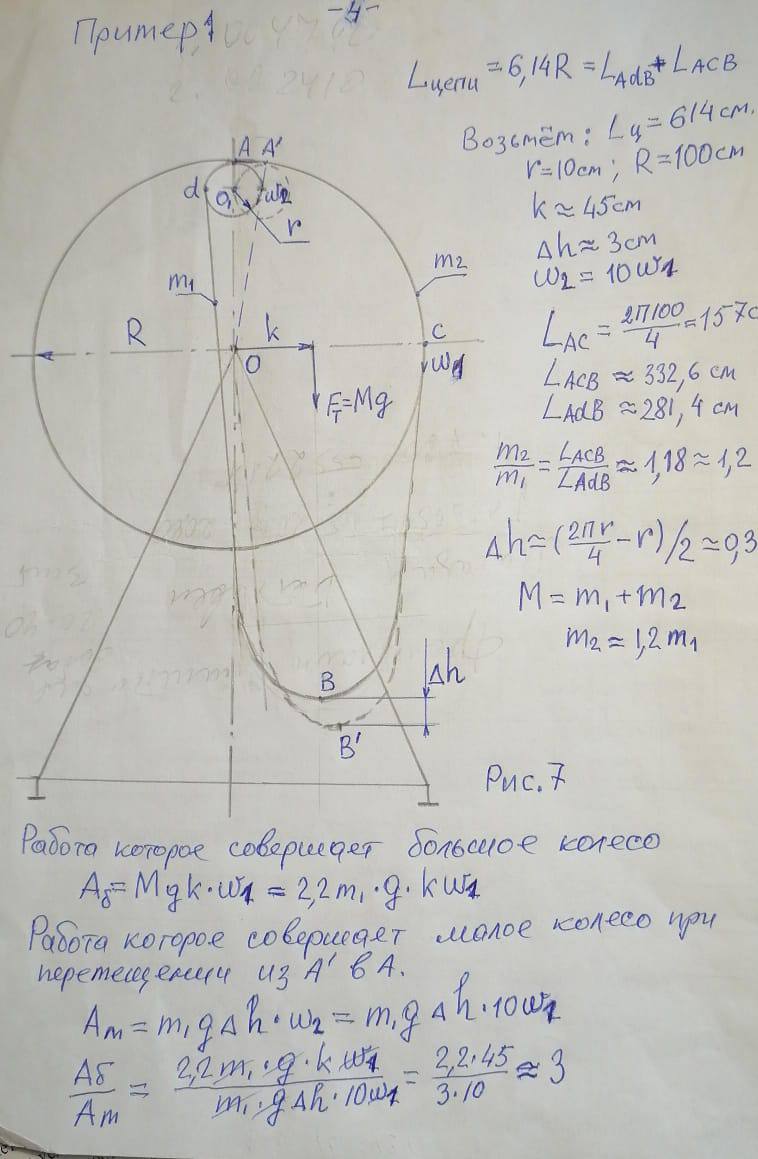 -4-
Пример 1
Lцепи = 6,14R = LAdB + LACB
Возьмём: Lц = 614 см.
r = 10см; R = 100см
k ≈ 45см
Δh ≈ 3см
ω2 = 10ω1
LAC = 2П100/4 = 157с
LACB ≈ 332,6 см
LAdB ≈ 281,4 см
m2/m1 = LACB/LAdB ≈ 1,18 ≈ 1,2
Δh ≈ (2Пr/4 - r)/2 ≈ 0,3
M = m1 + m2
m2 ≈ 1,2m1
A A'
d O1 ω2
r
m1
m2
R
k
C
O
ω1
FT = Mg
Δh
B
B'
Рис. 7
Работа которое совершает большое колесо
Aб = Mgk·ω1 = 2,2m1·g·kω1
Работа которое совершает малое колесо при
перемещении из A' в A.
Aм = m1gΔh·ω2 = m1gΔh·10ω1
Aб/Aм = 2,2m1·g·kω1/m1·gΔh·10ω1 = 2,2·45/3·10 ≈ 3